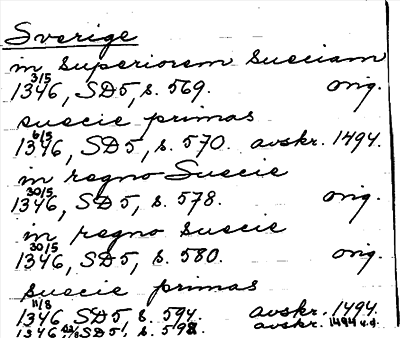 Sverige
in superiorem Sueciam
1346 3/5, SD5, s. 569. orig.
suecie primas
1346 6/5, SD5, s. 570. avskr. 1494.
in regno Suecie
1346 30/5, SD5, s. 578. orig.
in regno suecie
1346 30/5, SD5, s. 580. orig.
suecie primas
1346 11/8 SD5, s. 594. avskr. 1494.
1346 SD5, s. 598. avskr. 1494 v.g.